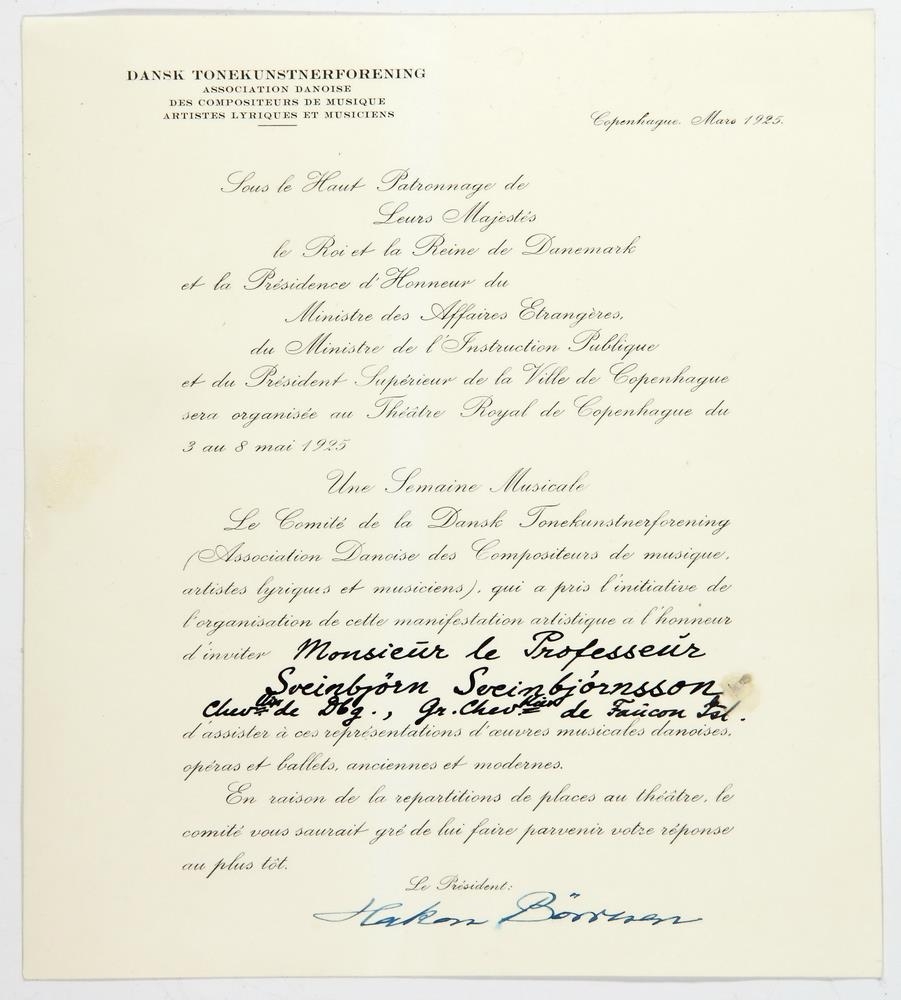 DANSK TONEKUNSTNERFORENING
ASSOCIATION DANOISE
DES COMPOSITEURS DE MUSIQUE
ARTISTES LYRIQUES ET MUSICIENS
Copenhague. Mars 1925.
Sous le Haut Patronnage de
Leurs Majestés
le Roi et la Reine de Danemark
et la Présidence d'Honneur du
Ministre des Affaires Etrangères,
du Ministre de l'Instruction Publique
et du Président Supérieur de la Ville de Copenhague
sera organisée au Théâtre Royal de Copenhague du
3 au 8 mai 1925
Une Semaine Musicale
Le Comité de la Dansk Tonekunstnerforening
(Association Danoise des Compositeurs de musique,
artistes lyriques et musiciens), qui a pris l'initiative de
l'organisation de cette manifestation artistique a l'honneur
d'inviter Monsieur le Professeur
Sveinbjörn Sveinbjórnsson
Chev. de Dbg., Gr. Chev. de Faucon Isl.
d'assister à ces représentations d'œuvres musicales danoises,
opéras et ballets, anciennes et modernes.
En raison de la repartitions de places au théâtre, le
comité vous saurait gré de lui faire parvenir votre réponse
au plus tôt.
Le Président:
Hakon Börresen